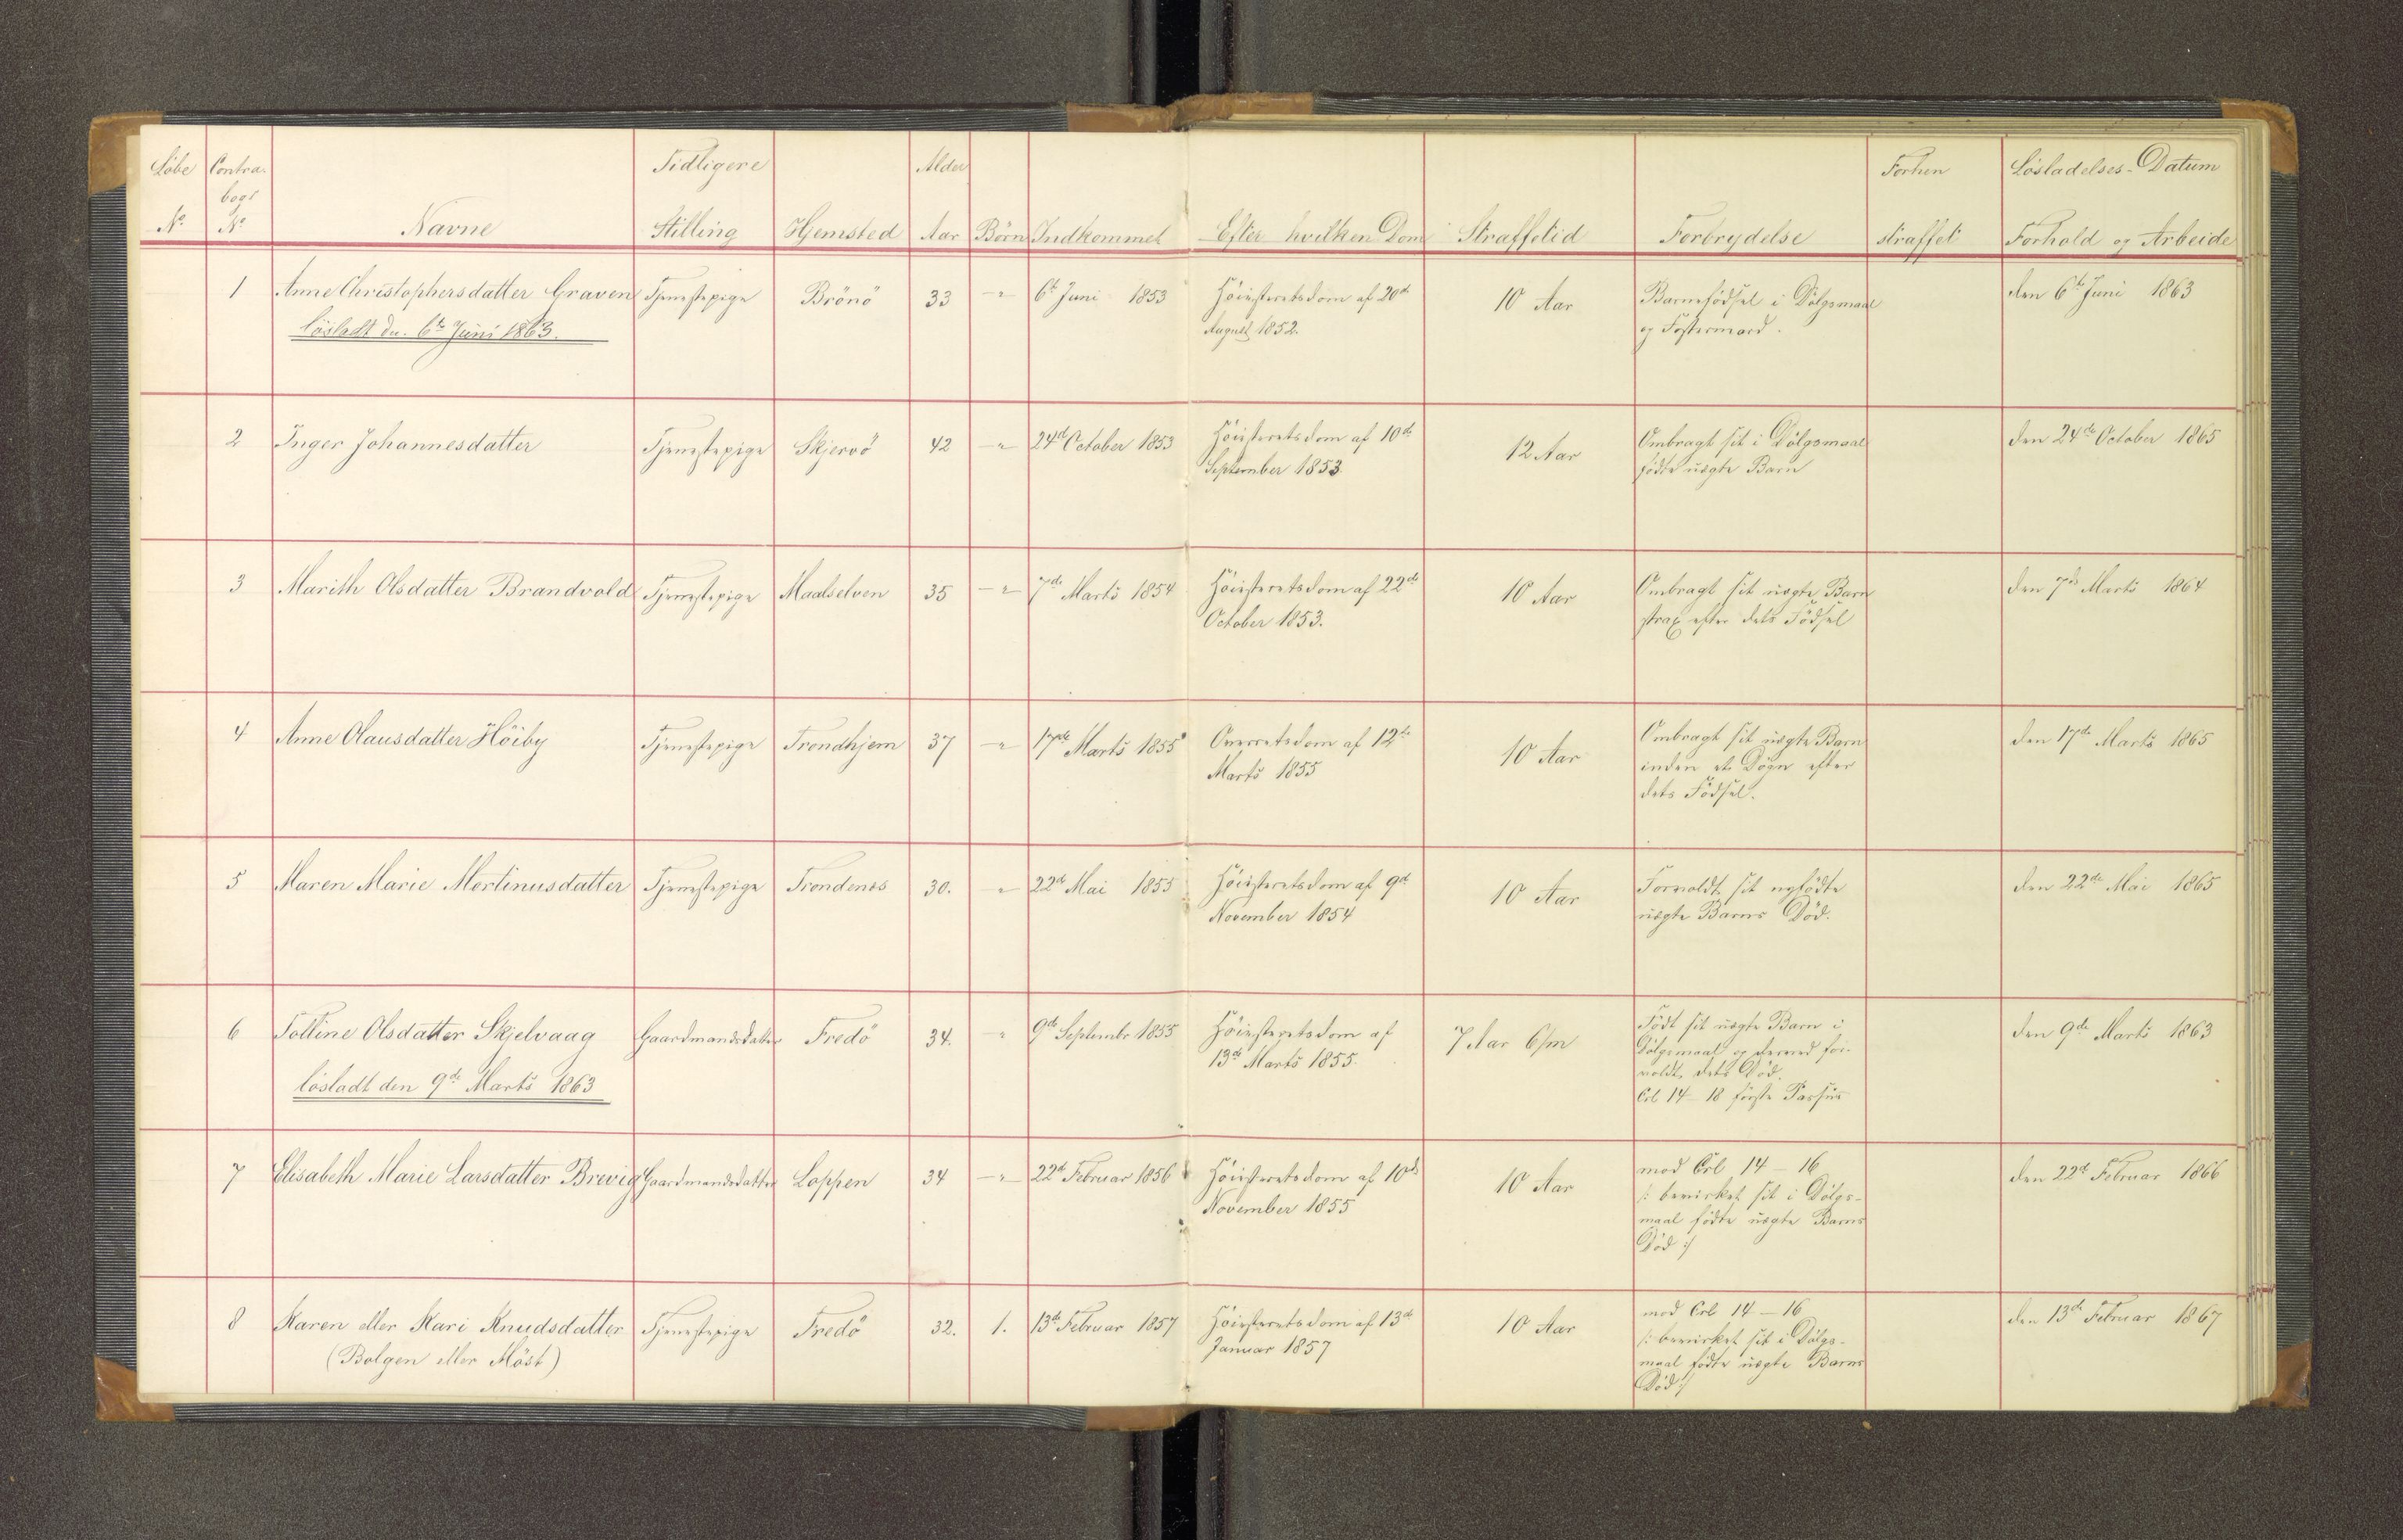 Løbe Contra- Tidligere Alder Forhen Løsladelses-Datum
bogs
No. No. Navne Stilling Hjemsted Aar Börn Indkommet Efter hvilken Dom Straffetid Forbrydelse straffet Forhold og Arbeide
1 Anne Christophersdatter Graven Tjenestepige Brönö 33 -"- 6te Juni 1853 Höiesteretsdom af 20de 10 Aar Barnefödsel i Dölgsmaal den 6te Juni 1863
lösladt dn. 6te Juni 1863. August 1852. og Fostermord.
2 Inger Johannesdatter Tjenestepige Skjervö 42 -"- 24de October 1853 Höiesteretsdom af 10de 12 Aar Ombragt sit i Dölgsmaal den 24de October 1865
September 1853. födte uægte Barn
3 Marith Olsdatter Brandvold Tjenestepige Maalselven 35 -"- 7de Marts 1854 Höiesteretsdom af 22de 10 Aar Ombragt sit uægte Barn den 7de Marts 1864
October 1853. strax efter dets Födsel
4 Anne Olausdatter Höiby Tjenestepige Trondhjem 37 -"- 17de Marts 1855 Overretsdom af 12te 10 Aar Ombragt sit uægte Barn den 17de Marts 1865
Marts 1855 inden et Dögn efter
dets Födsel.
5 Maren Marie Mortinusdatter Tjenestepige Trondenes 30. -"- 22de Mai 1855 Höiesteretsdom af 9de 10 Aar Forvoldt sit nyfödte den 22de Mai 1865
November 1854 uægte Barns Död.
6 Tolline Olsdatter Skjelvaag Gaardmandsdatter Fredö 34. " 9de Septembr 1855 Höiesteretsdom af 7 Aar 6/m Födt sit uægte Barn i den 9de Marts 1863
13de Marts 1855. Dölgsmaal og derved for-
lösladt den 9de Marts 1863 voldt dets Död.
Crl 14-18 förste Passus
7 Elisabeth Marie Larsdatter Brevig Gaardmandsdatter Loppen 34 -"- 22de Februar 1856 Höiesteretsdom af 10de 10 Aar mod Crl 14-16 den 22de Februar 1866
November 1855 /: bevirket sit i Dölgs-
maal födte uægte Barns
Död :/
8 Karen eller Kari Knudsdatter Tjenestepige Fredö 32. 1. 13de Februar 1857 Höiesteretsdom af 13de 10 Aar mod Crl 14-16 den 13de Februar 1867
(Bolgen eller Möst) Januar 1857 /: bevirket sit i Dölgs-
maal födte uægte Barns
Död :/